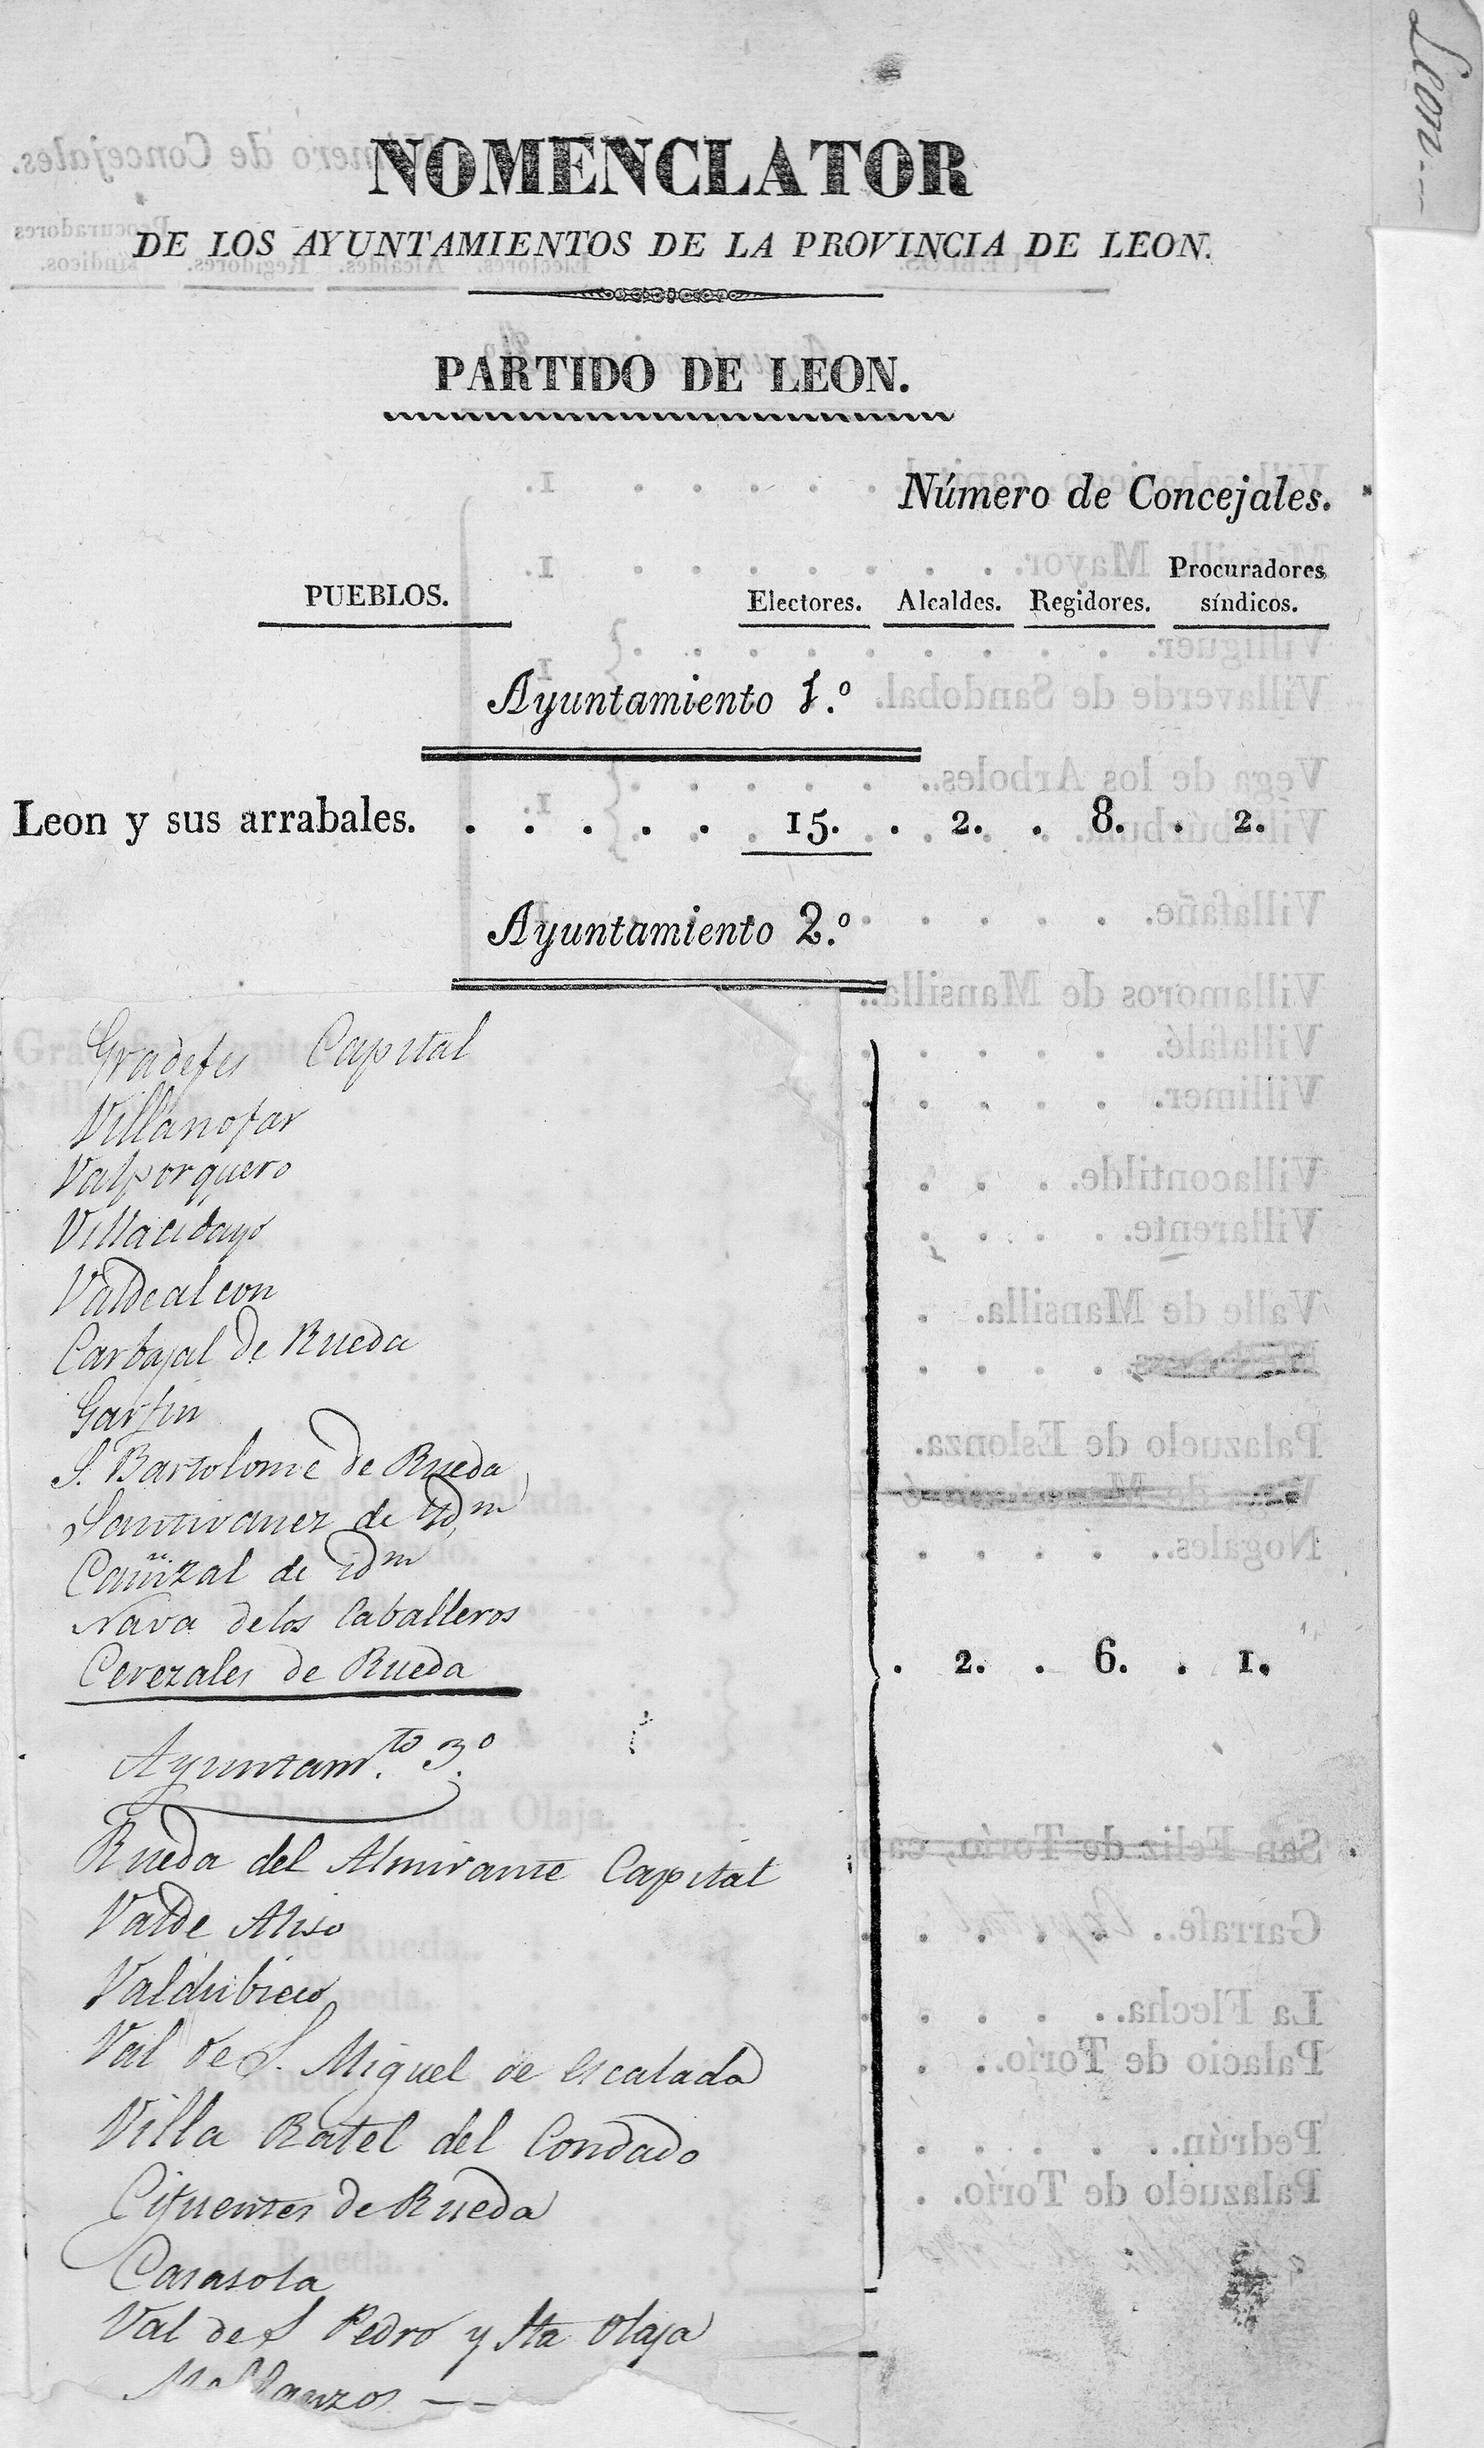 Leon
NOMENCLATOR
DE LOS AYUNTAMIENTOS DE LA PROVINCIA DE LEON.
PARTIDO DE LEON.
Número de Concejales.
PUEBLOS. Electores. Alcaldes. Regidores. Procuradores síndicos.
Ayuntamiento 1.º
Leon y sus arrabales. . . . . . 15. . 2. . 8. . 2.
Ayuntamiento 2.º
Gradefes Capital
Villanofar
Valporquero
Villacidayo
Valdealcon
Carbajal de Rueda
Garfin
S. Bartolome de Rueda
Santivanez de Idm
Cañizal de idm
Nava delos Caballeros
Cerezales de Rueda
. 2. . 6. . 1.
Ayuntam.to 3.º
Rueda del Almirante Capital
Valde Aliso
Valdubieco
Val de S. Miguel de escalada
Villa Ratel del Condado
Cifuentes de Rueda
Casasola
Val de S Pedro y Sta Olaja